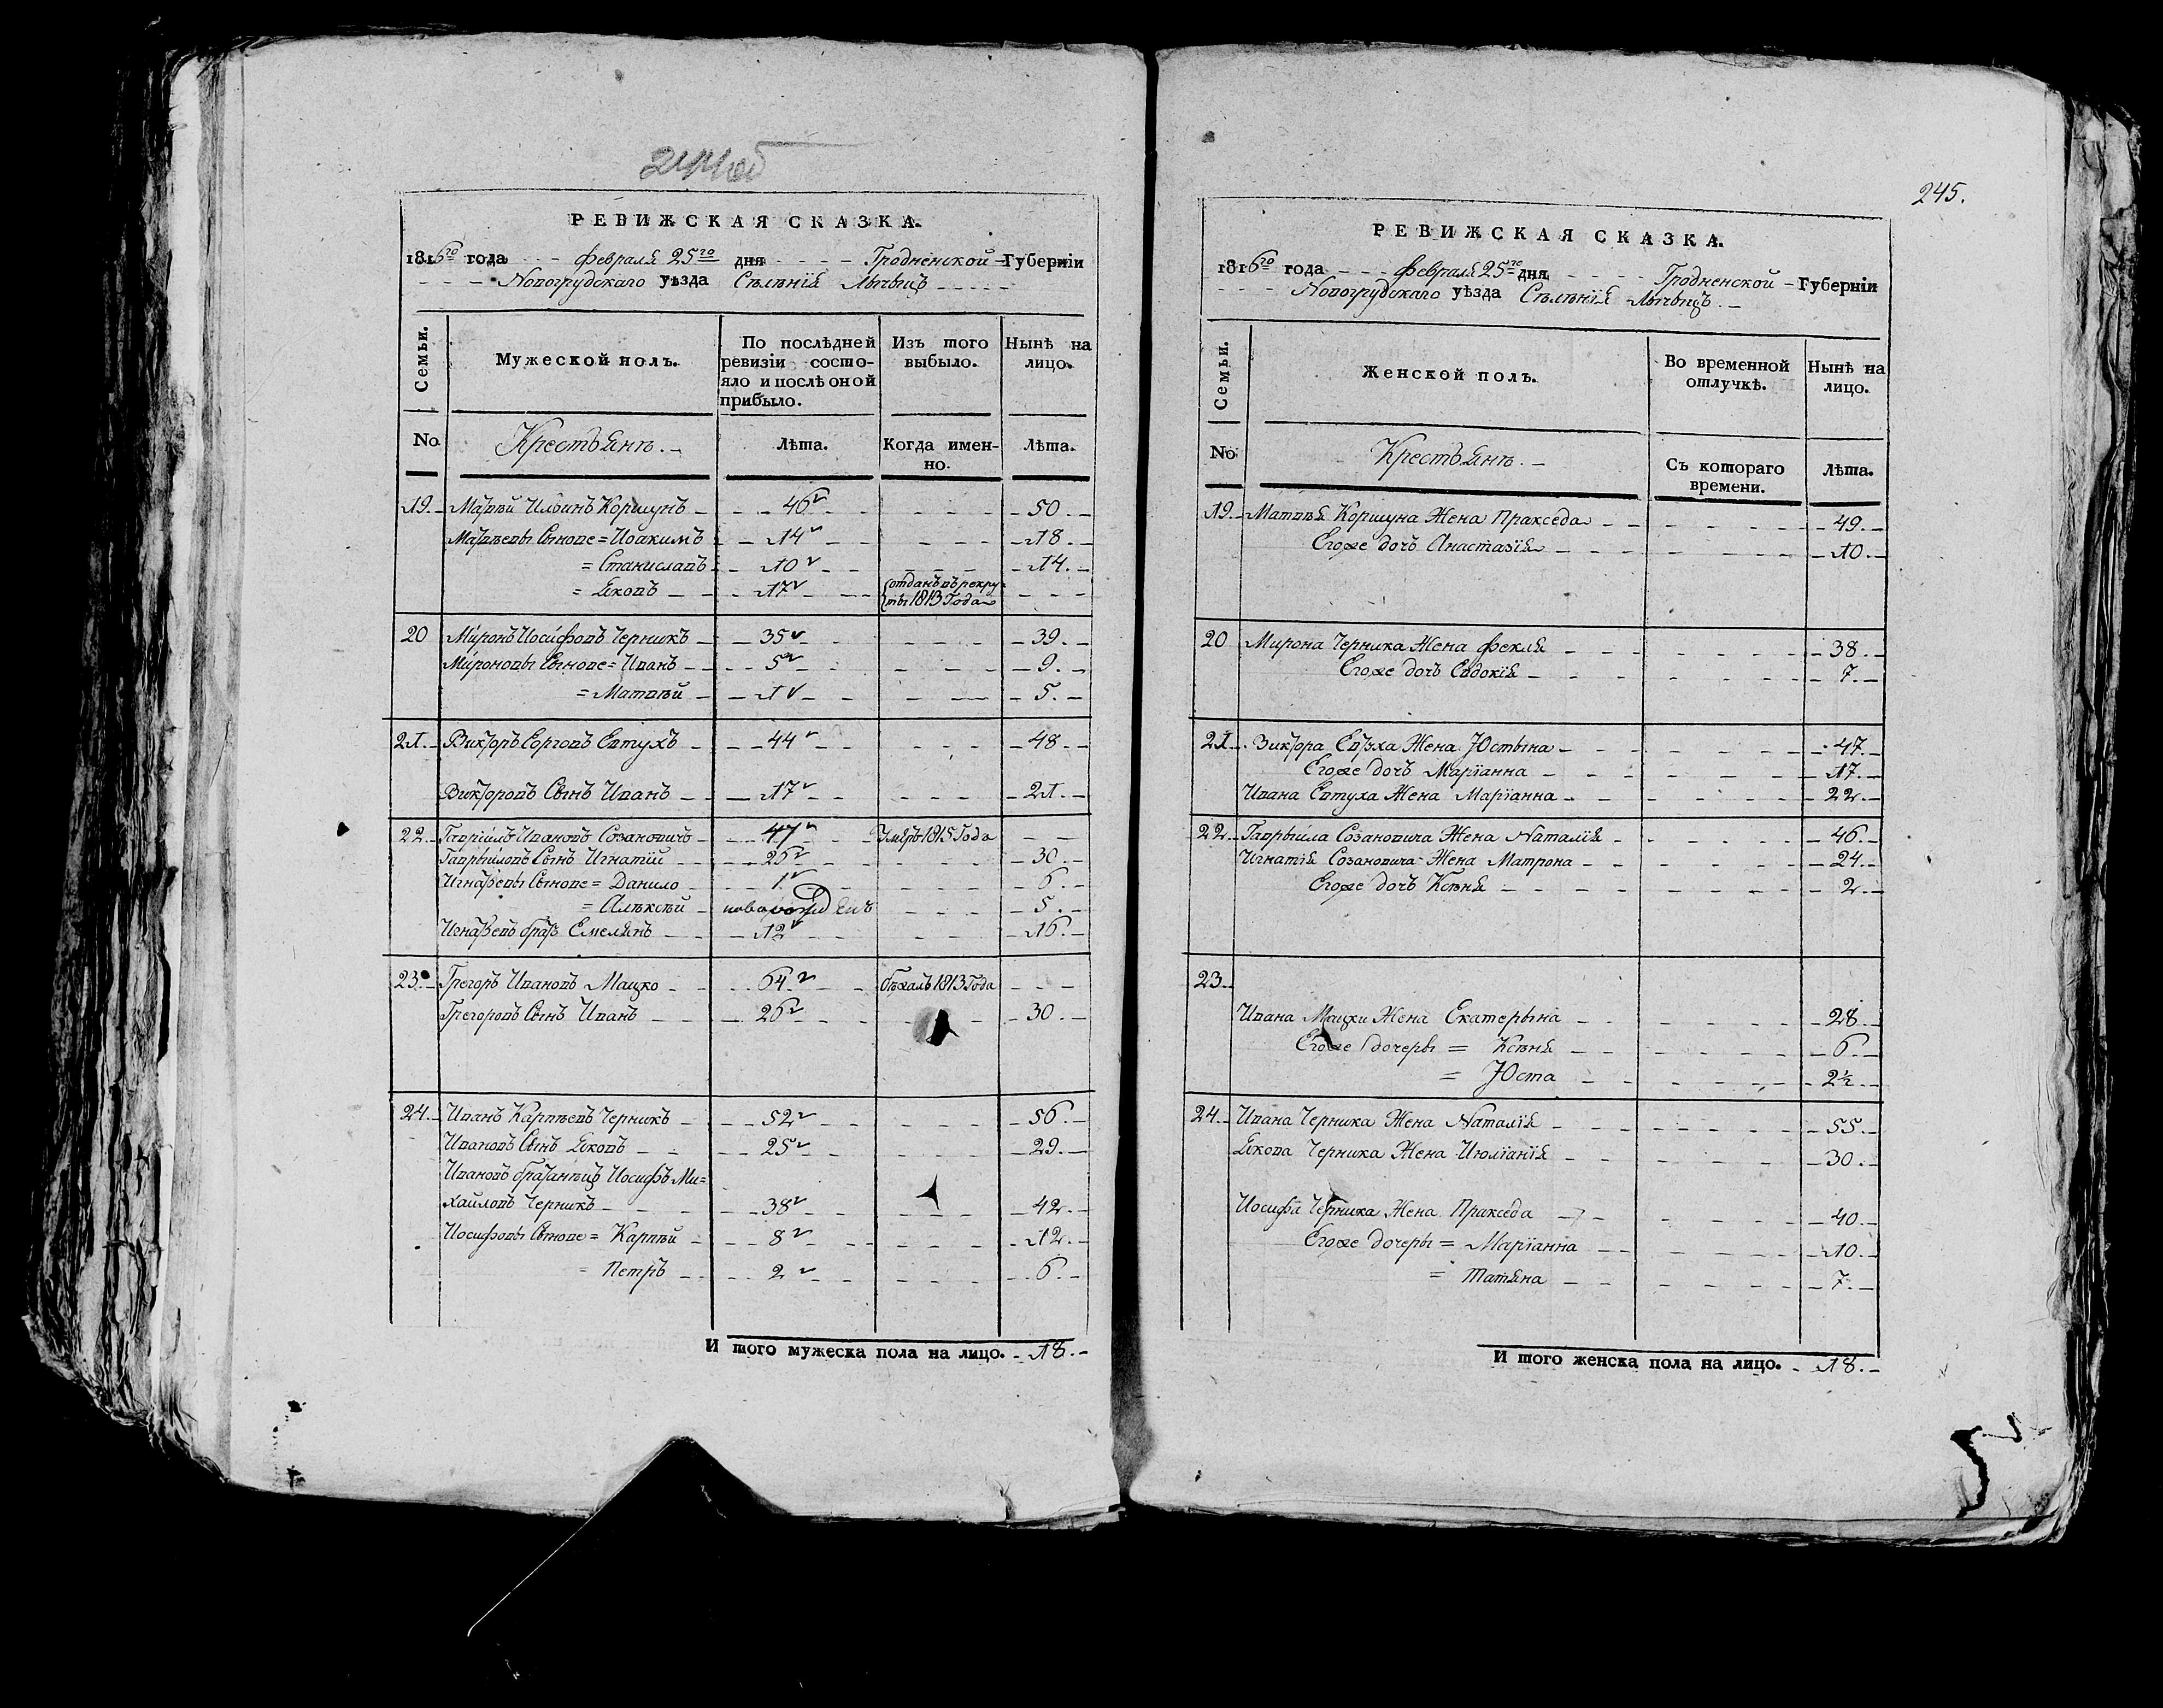 244об
РЕВИЖСКАЯ СКАЗКА.
1816го года февраля 25го дня Гродненской Губернїи
Новогрудскаго уѣзда Сѣлѣнїя
Семьи. Мужеской полъ. По послѣдней ревизїи состояло и послѣ оной прибыло. Изъ того выбыло. Нынѣ на лицо.
No Крестьянъ. Лѣта. Когда именно. Лѣта.
19. Матвѣй Ильинъ Коршунъ 46 50.
Матвѣевы Сынове = Иоакимъ 14 18.
= Станиславъ 10 14.
= Яковъ 17 отданъ въ рекруты 1813 Года
20 Миронъ Иосифовъ Черникъ 35 39.
Мироновы Сынове = Иванъ 5 9.
= Матвѣй 1 5.
21. Викторъ Серговъ Евтухъ 44 48.
Викторовъ Сынъ Иванъ 17 21.
22. Гаврыилъ Ивановъ Созановичъ 47 Умеръ 1815 Года
Гаврыиловъ Сынъ Игнатїй 26 30.
Игнатьевы Сынове = Данило 1 6.
= Алѣксѣй новорожденъ 5.
Игнатьевъ братъ Емелянъ 12 16.
23. Грегоръ Ивановъ Мацко 64 бѣжалъ 1813 Года
Грегоровъ Сынъ Иванъ 26 30.
24. Иванъ Карпѣевъ Черникъ 52 56.
Ивановъ Сынъ Яковъ 25 29.
Ивановъ братанѣцъ Иосифъ Ми=
хайловъ Черникъ 38 42.
Иосифовы Сынове = Карпѣй 8 12.
= Петръ 2 6.
И того мужеска пола на лицо. 18.
245.
РЕВИЖСКАЯ СКАЗКА.
1816го года Февраля 25го дня Гродненской Губернїи
Новогрудскаго уѣзда Сѣлѣнїя
Семьи. Женской полъ. Во временной отлучкѣ. Нынѣ на лицо.
No Крестьянъ. Съ котораго времени. Лѣта.
19. Матвѣя Коршуна Жена Пракседа 49.
Егоже дочь Анастазїя 10.
20 Мирона Черника Жена Фекля 38.
Егоже дочь Евдокїя 7.
21. Виктора Евтуха Жена Юстына 47.
Егоже дочь Марїанна 17.
Ивана Евтуха Жена Марїанна 22.
22. Гаврыила Созановича Жена Наталїя 46.
Игнатїя Созановича Жена Матрона 24.
Егоже дочь Ксѣня 2.
23.
Ивана Мацки Жена Екатерына 28.
Егоже дочеры = Ксѣня 6.
= Юста 2½
24. Ивана Черника Жена Наталїя 55.
Якова Черника Жена Июлїанїя 30.
Иосифа Черника Жена Пракседа 40.
Егоже дочеры = Марїанна 10.
= Татяна 7.
И того женска пола на лицо. 18.